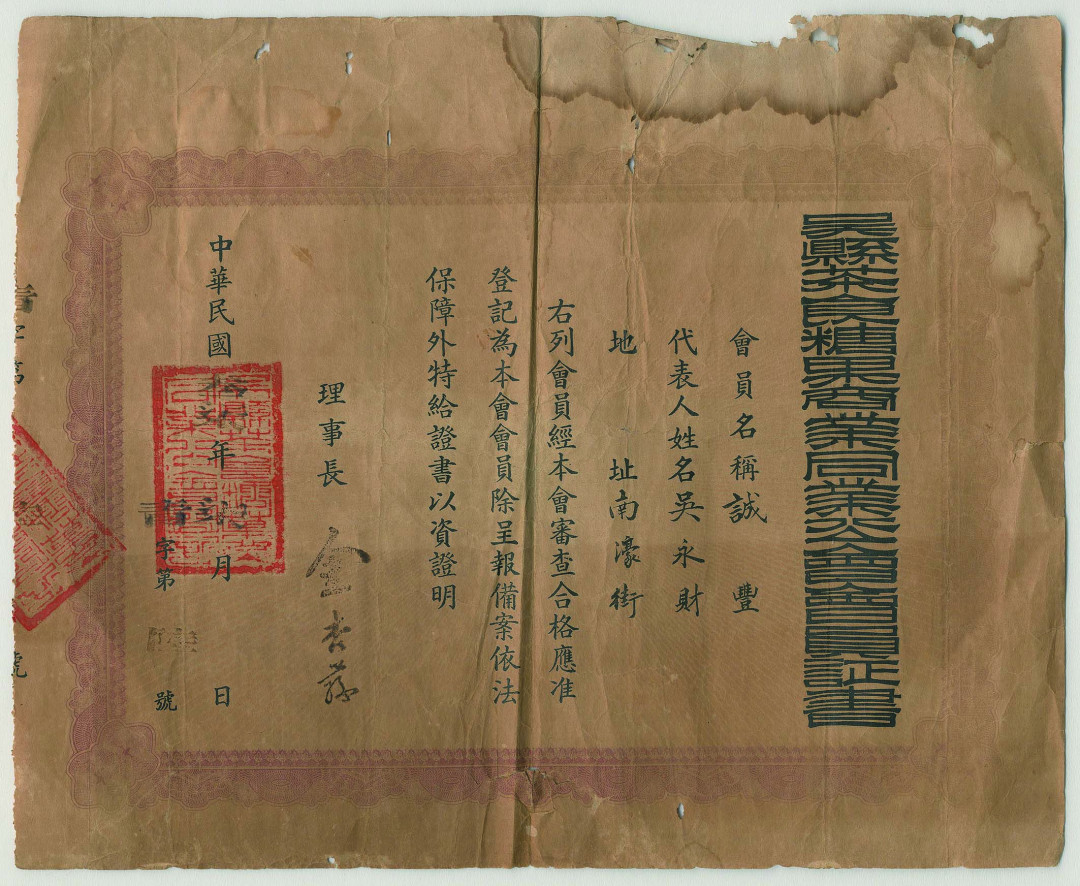 吳縣茶食糖果商業同業公會會員証書
會員名稱誠豐
代表人姓名吳永財
地址南濠街
右列會員經本會審查合格應准
登記為本會會員除呈報備案依法
保障外特給證書以資證明
理事長 金杏蓀
中華民國年月日
字第號
字第號